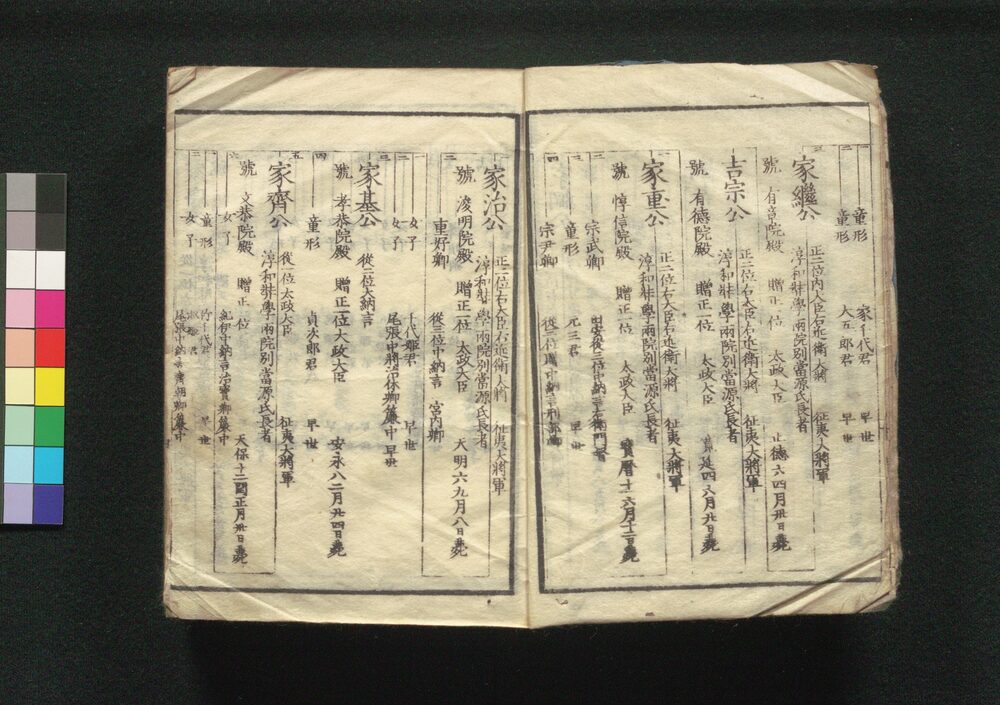 一 童形 家千代君 早世
二 童形 大五郎君 早世
三 家繼公 正二位内大臣右近衛大將 征夷大將軍
淳和奬學兩院別當源氏長者
號 有章院殿 贈正一位 太政大臣 正德六四月卅日薨
吉宗公 正二位右大臣右近衛大將 征夷大將軍
淳和奬學兩院別當源氏長者
號 有德院殿 贈正一位 太政大臣 四六月廿日薨
一 家重公 正二位右大臣右近衛大將 征夷大將軍
淳和奬學兩院別當源氏長者
號 惇信院殿 贈正一位 太政大臣 寶曆十一六月十二日薨
二 宗武卿 田安從三位中納言右衛門督
三 童形 元三君 早世
四 宗尹卿 從三位中納言刑部卿
一 家治公 正二位右大臣右近衛大將 征夷大將軍
淳和奬學兩院別當源氏長者
號 浚明院殿 贈正一位 太政大臣 天明六九月八日薨
二 重好卿 從三位中納言 宮内卿
一 女子 千代姬君 早世
二 女子 尾張中將治休卿簾中 早世
三 家基公 從二位大納言
號 孝恭院殿 贈正一位太政大臣 安永八二月廿四日薨
四 童形 貞次郎君 早世
五 家齊公 從一位太政大臣 征夷大將軍
淳和奬學兩院別當源氏長者
號 文恭院殿 贈正一位 天保十二閏正月卅日薨
六 女子 紀伊中納言治寶卿簾中
童形 竹千代君 早世
女子 淑姬君 尾張中納言齊朝卿簾中